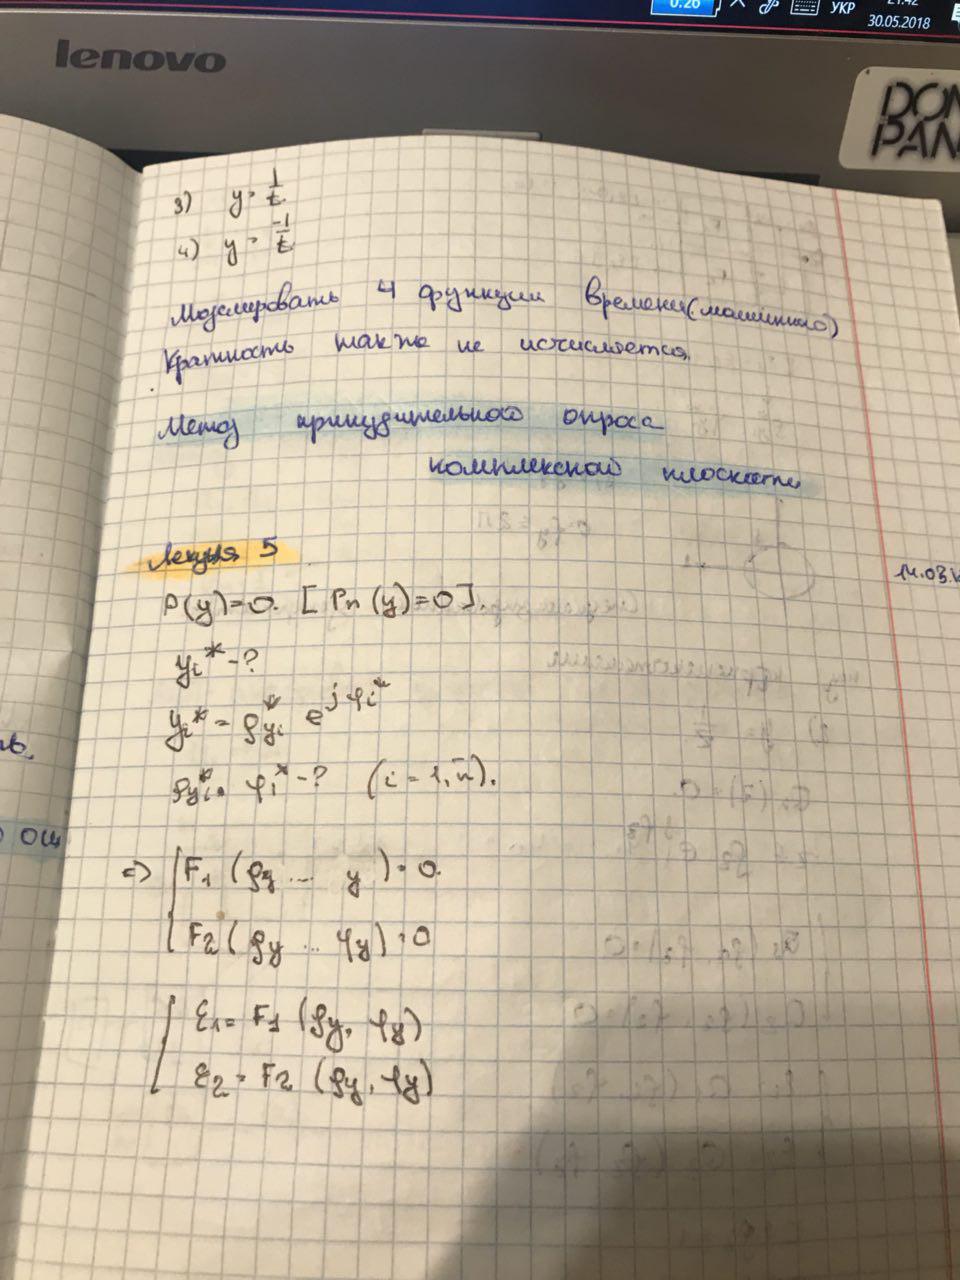 0:26
УКР
30.05.2018
lenovo
DON
PAN
3) y = 1/t
4) y = -1/t
Моделировать 4 функции времени (машинного)
Кратность также не исчисляется.
Метод принудительного опроса
комплексной плоскости
Лекция 5
14.03.
P(y)=0. [Pn(y)=0].
yi* - ?
yi* = ρyi* e^jφi*
ρyi*, φi* - ? (i = 1,n).
=> F1 (ρy ... y) = 0.
F2 (ρy ... φy) = 0
ε1 = F1 (ρy, φy)
ε2 = F2 (ρy, φy)